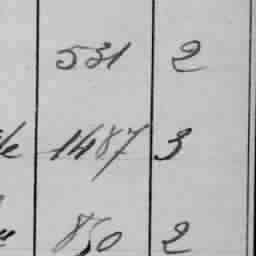 531 2
le 1487 3
850 2